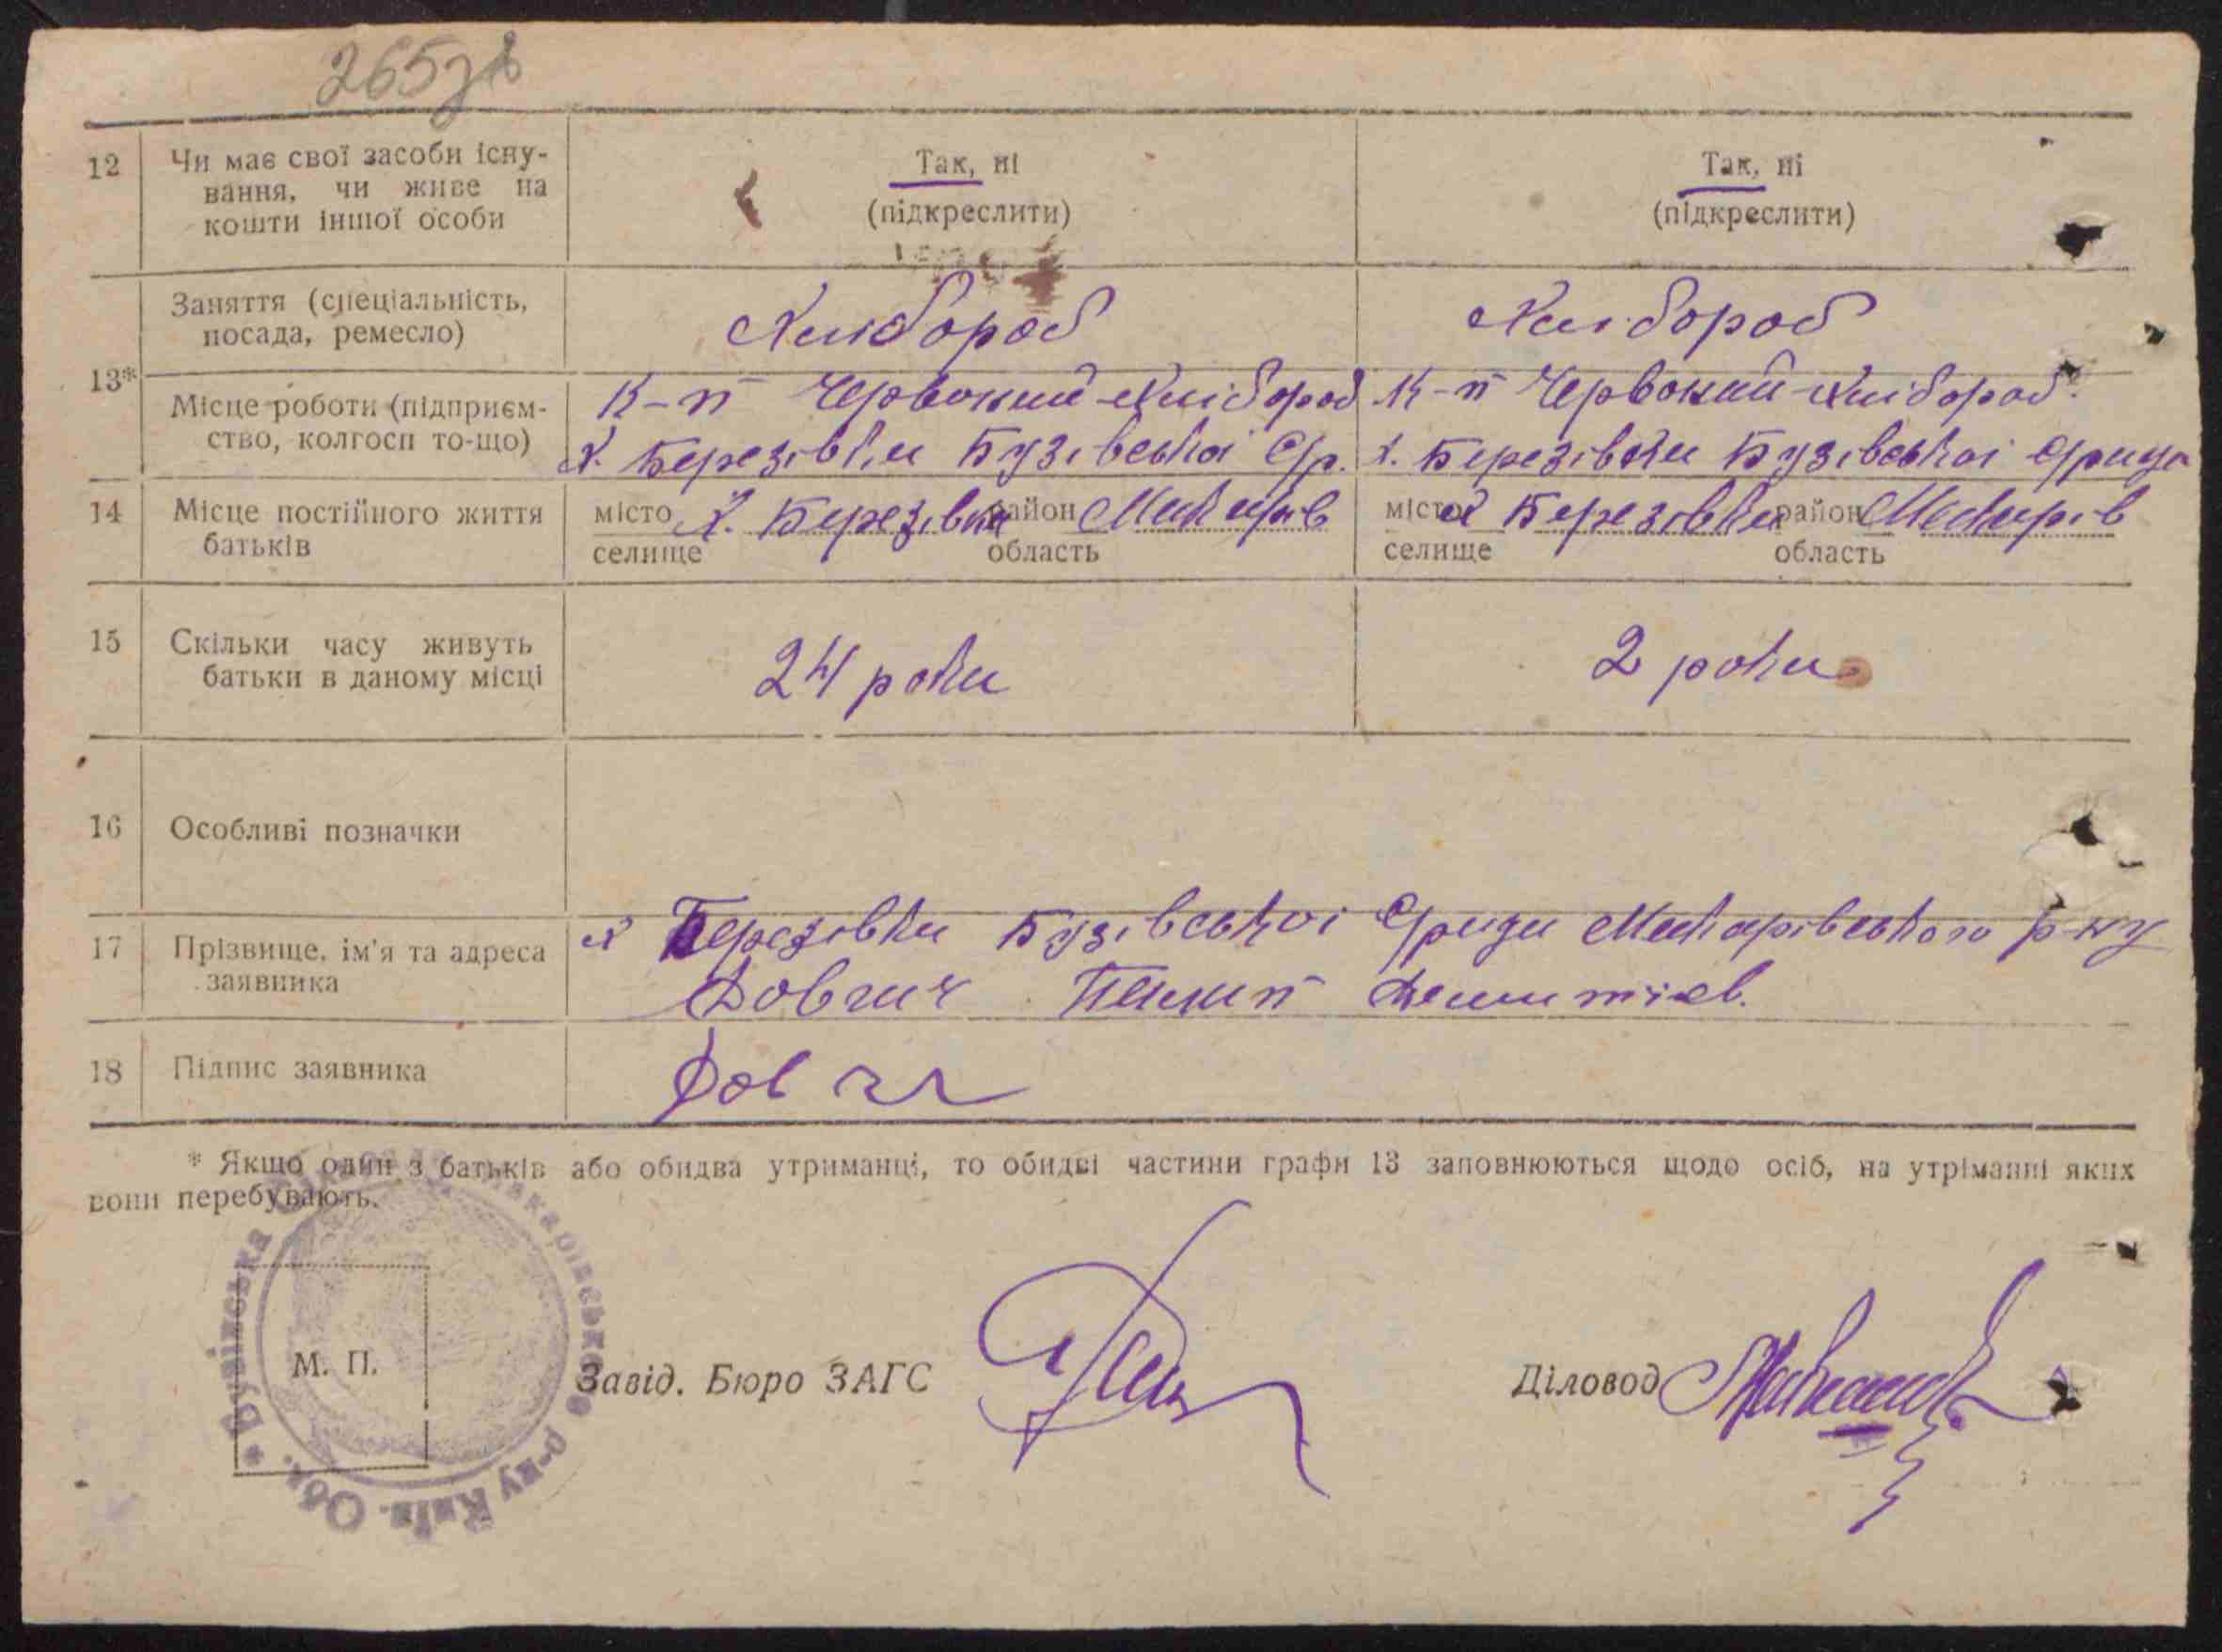 265зв
12 Чи має свої засоби існу-
вання, чи живе на
кошти іншої особи
Так, ні
(підкреслити)
Так, ні
(підкреслити)
13*
Заняття (спеціальність,
посада, ремесло)
Хлібороб
Хлібороб
Місце роботи (підприєм-
ство, колгосп то-що)
К-п Червоний-Хлібороб
х. Березівки Бузівської С/р.
К-п Червоний-Хлібороб.
х. Березівки Бузівської С/ради
14 Місце постійного життя
батьків
місто х. Березівки район Макарів
селище область
місто х Березівки район Макарів
селище область
15 Скільки часу живуть
батьки в даному місці
24 роки
2 роки
16 Особливі позначки
17 Прізвище, ім'я та адреса
заявника
х Березівки Бузівської С/ради Макарівського р-ну
Довгич Пилип
18 Підпис заявника
Довг
* Якщо один з батьків або обидва утриманці, то обидві частини графи 13 заповнюються щодо осіб, на утріманні яких
вони перебувають.
Бузівська Макарівського р-ну Київ. Обл. *
М. П.
Завід. Бюро ЗАГС
Діловод